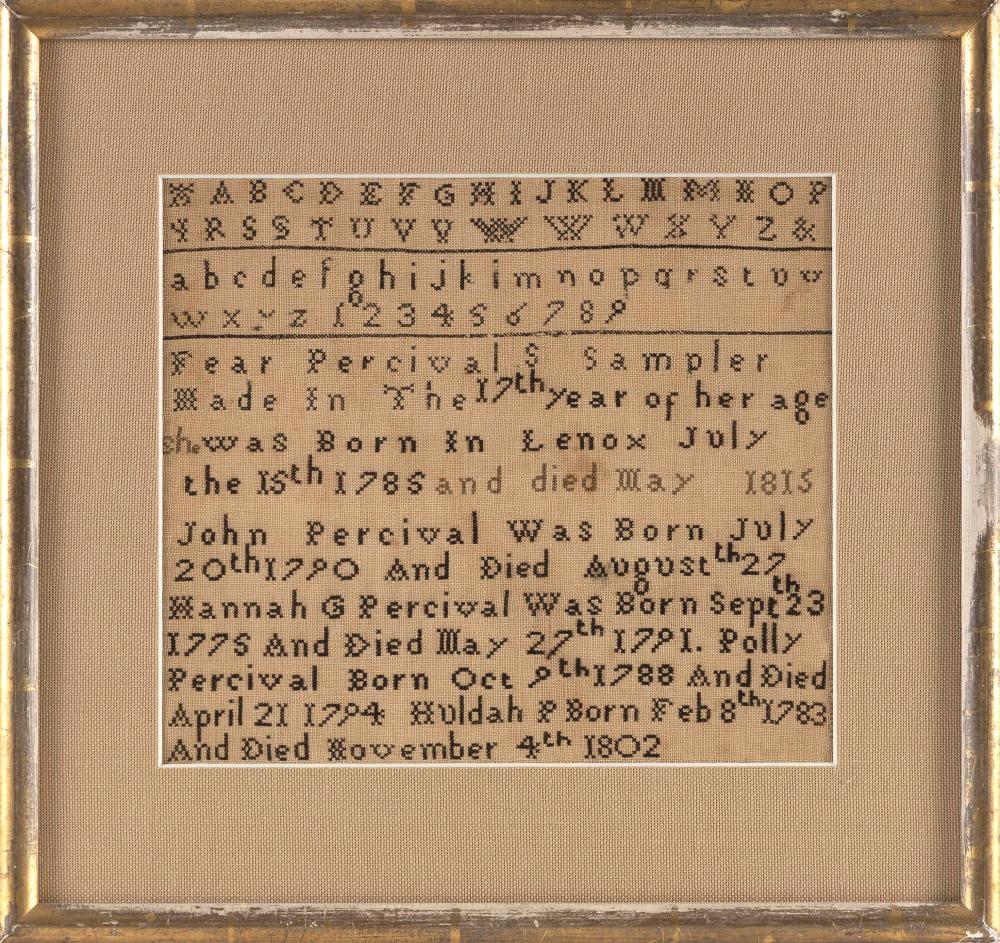 A A B C D E F G H I J K L M M N O P
Q R S S T U V V W W W X Y Z &
a b c d e f g h i j k i m n o p q r s t u v
w x y z 1 2 3 4 5 6 7 8 9
Fear Percival S Sampler
Made In The 17th year of her age
she was Born In Lenox July
the 15th 1785 and died May 1815
John Percival Was Born July
20th 1790 And Died August th 27
Hannah G Percival Was Born Sept th 23
1775 And Died May 27th 1791. Polly
Percival Born Oct 9th 1788 And Died
April 21 1794 Huldah P Born Feb 8th 1783
And Died November 4th 1802